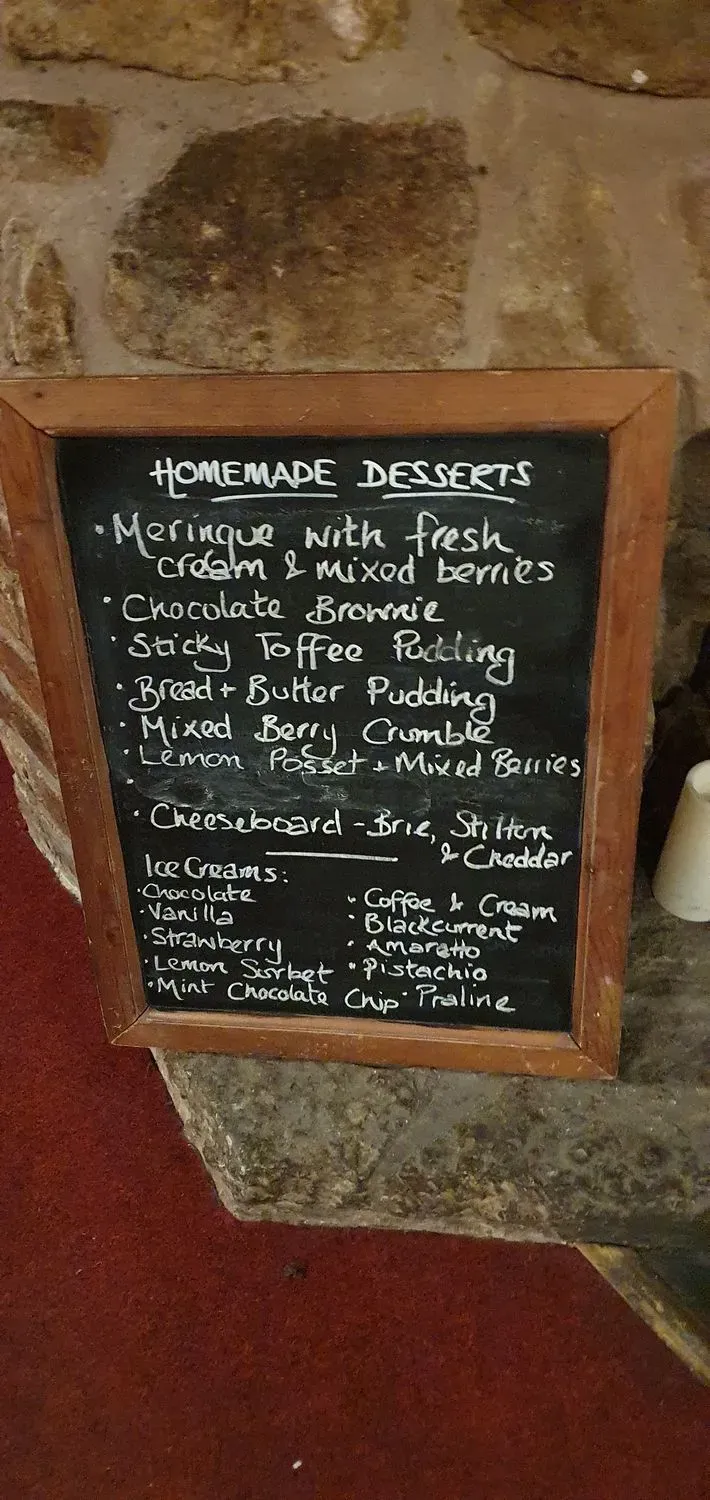 HOMEMADE DESSERTS
• Meringue with fresh
cream & mixed berries
• Chocolate Brownie
• Sticky Toffee Pudding
• Bread + Butter Pudding
• Mixed Berry Crumble
• Lemon Posset + Mixed Berries
•
• Cheeseboard - Brie, Stilton
& Cheddar
Ice Creams:
• Chocolate
• Vanilla
• Strawberry
• Lemon Sorbet
• Mint Chocolate Chip
• Coffee & Cream
• Blackcurrent
• Amaretto
• Pistachio
• Praline